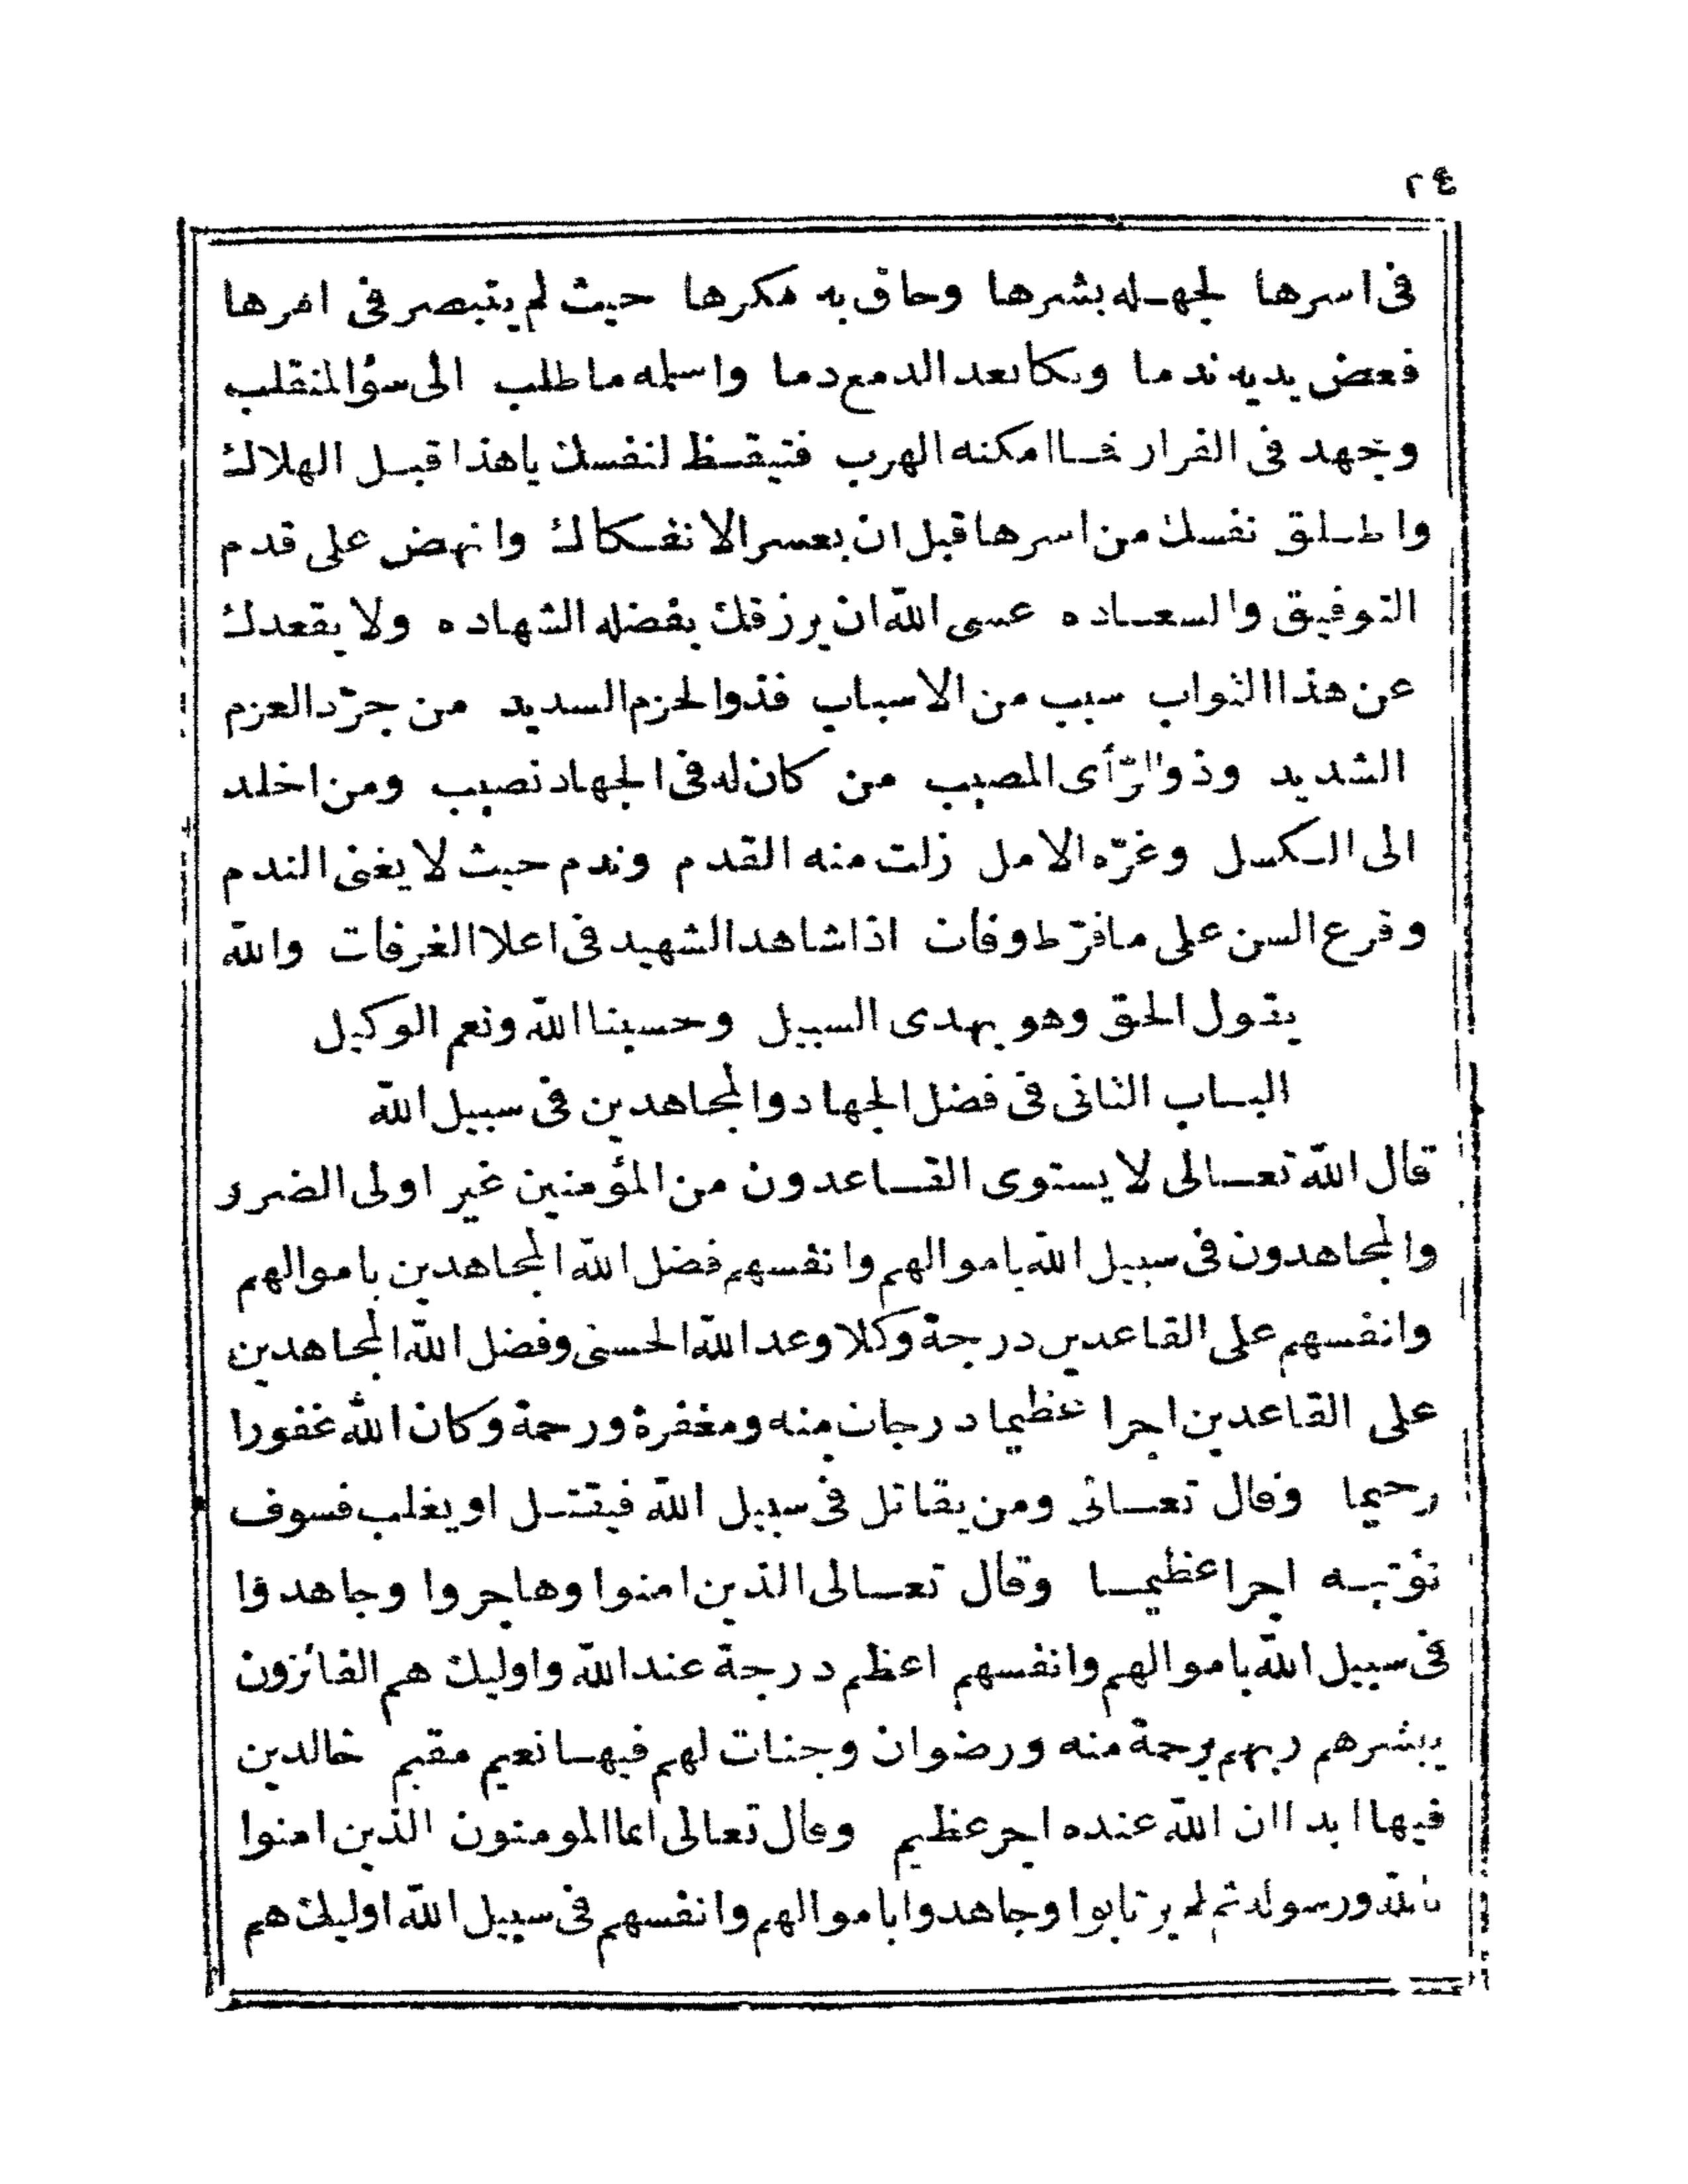 ٢٤
فى اسرها لجهله بشرها وحاق به مكرها حيث لم يتبصر فى امرها
فعض يديه ندما وبكا بعد الدمع دما واسلمه ما طلب الى سؤ المنقلب
وجهد فى الفرار فما امكنه الهرب فتيقظ لنفسك ياهذا قبل الهلاك
واطلق نفسك من اسرها قبل ان يعسر الانفكاك وانهض على قدم
التوفيق والسعاده عسى الله ان يرزقك بفضله الشهاده ولا يقعدك
عن هذا الثواب سبب من الاسباب فذو الحزم السديد من جرّد العزم
الشديد وذو الرّأى المصيب من كان له فى الجهاد نصيب ومن اخلد
الى الكسل وغرّه الامل زلت منه القدم وندم حيث لا يغنى الندم
وقرع السن على ما فرّط وفات اذا شاهد الشهيد فى اعلا الغرفات والله
يقول الحق وهو يهدى السبيل وحسبنا الله ونعم الوكيل
الباب الثانى فى فضل الجهاد والمجاهدين فى سبيل الله
قال الله تعالى لا يستوى القاعدون من المؤمنين غير اولى الضرر
والمجاهدون فى سبيل الله باموالهم وانفسهم فضل الله المجاهدين باموالهم
وانفسهم على القاعدين درجة وكلا وعد الله الحسنى وفضل الله المجاهدين
على القاعدين اجرا عظيما درجات منه ومغفرة ورحمة وكان الله غفورا
رحيما وقال تعالى ومن يقاتل فى سبيل الله فيقتل او يغلب فسوف
نؤتيه اجرا عظيما وقال تعالى الذين امنوا وهاجروا وجاهدوا
فى سبيل الله باموالهم وانفسهم اعظم درجة عند الله واوليك هم الفائزون
يبشرهم ربهم برحمة منه ورضوان وجنات لهم فيها نعيم مقيم خالدين
فيها ابدا ان الله عنده اجر عظيم وقال تعالى انما المومنون الذين امنوا
بالله ورسوله ثم لم يرتابوا وجاهدوا باموالهم وانفسهم فى سبيل الله اوليك هم